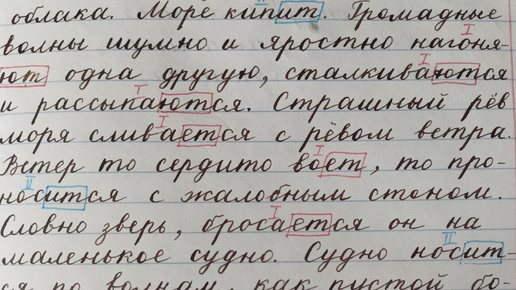 облака. Море кипит. Громадные
волны шумно и яростно нагоня-
ют одна другую, сталкиваются
и рассыпаются. Страшный рёв
моря сливается с рёвом ветра.
Ветер то сердито воет, то про-
носится с жалобным стоном.
Словно зверь, бросается он на
маленькое судно. Судно носит-
ся по волнам, как пустой бо-